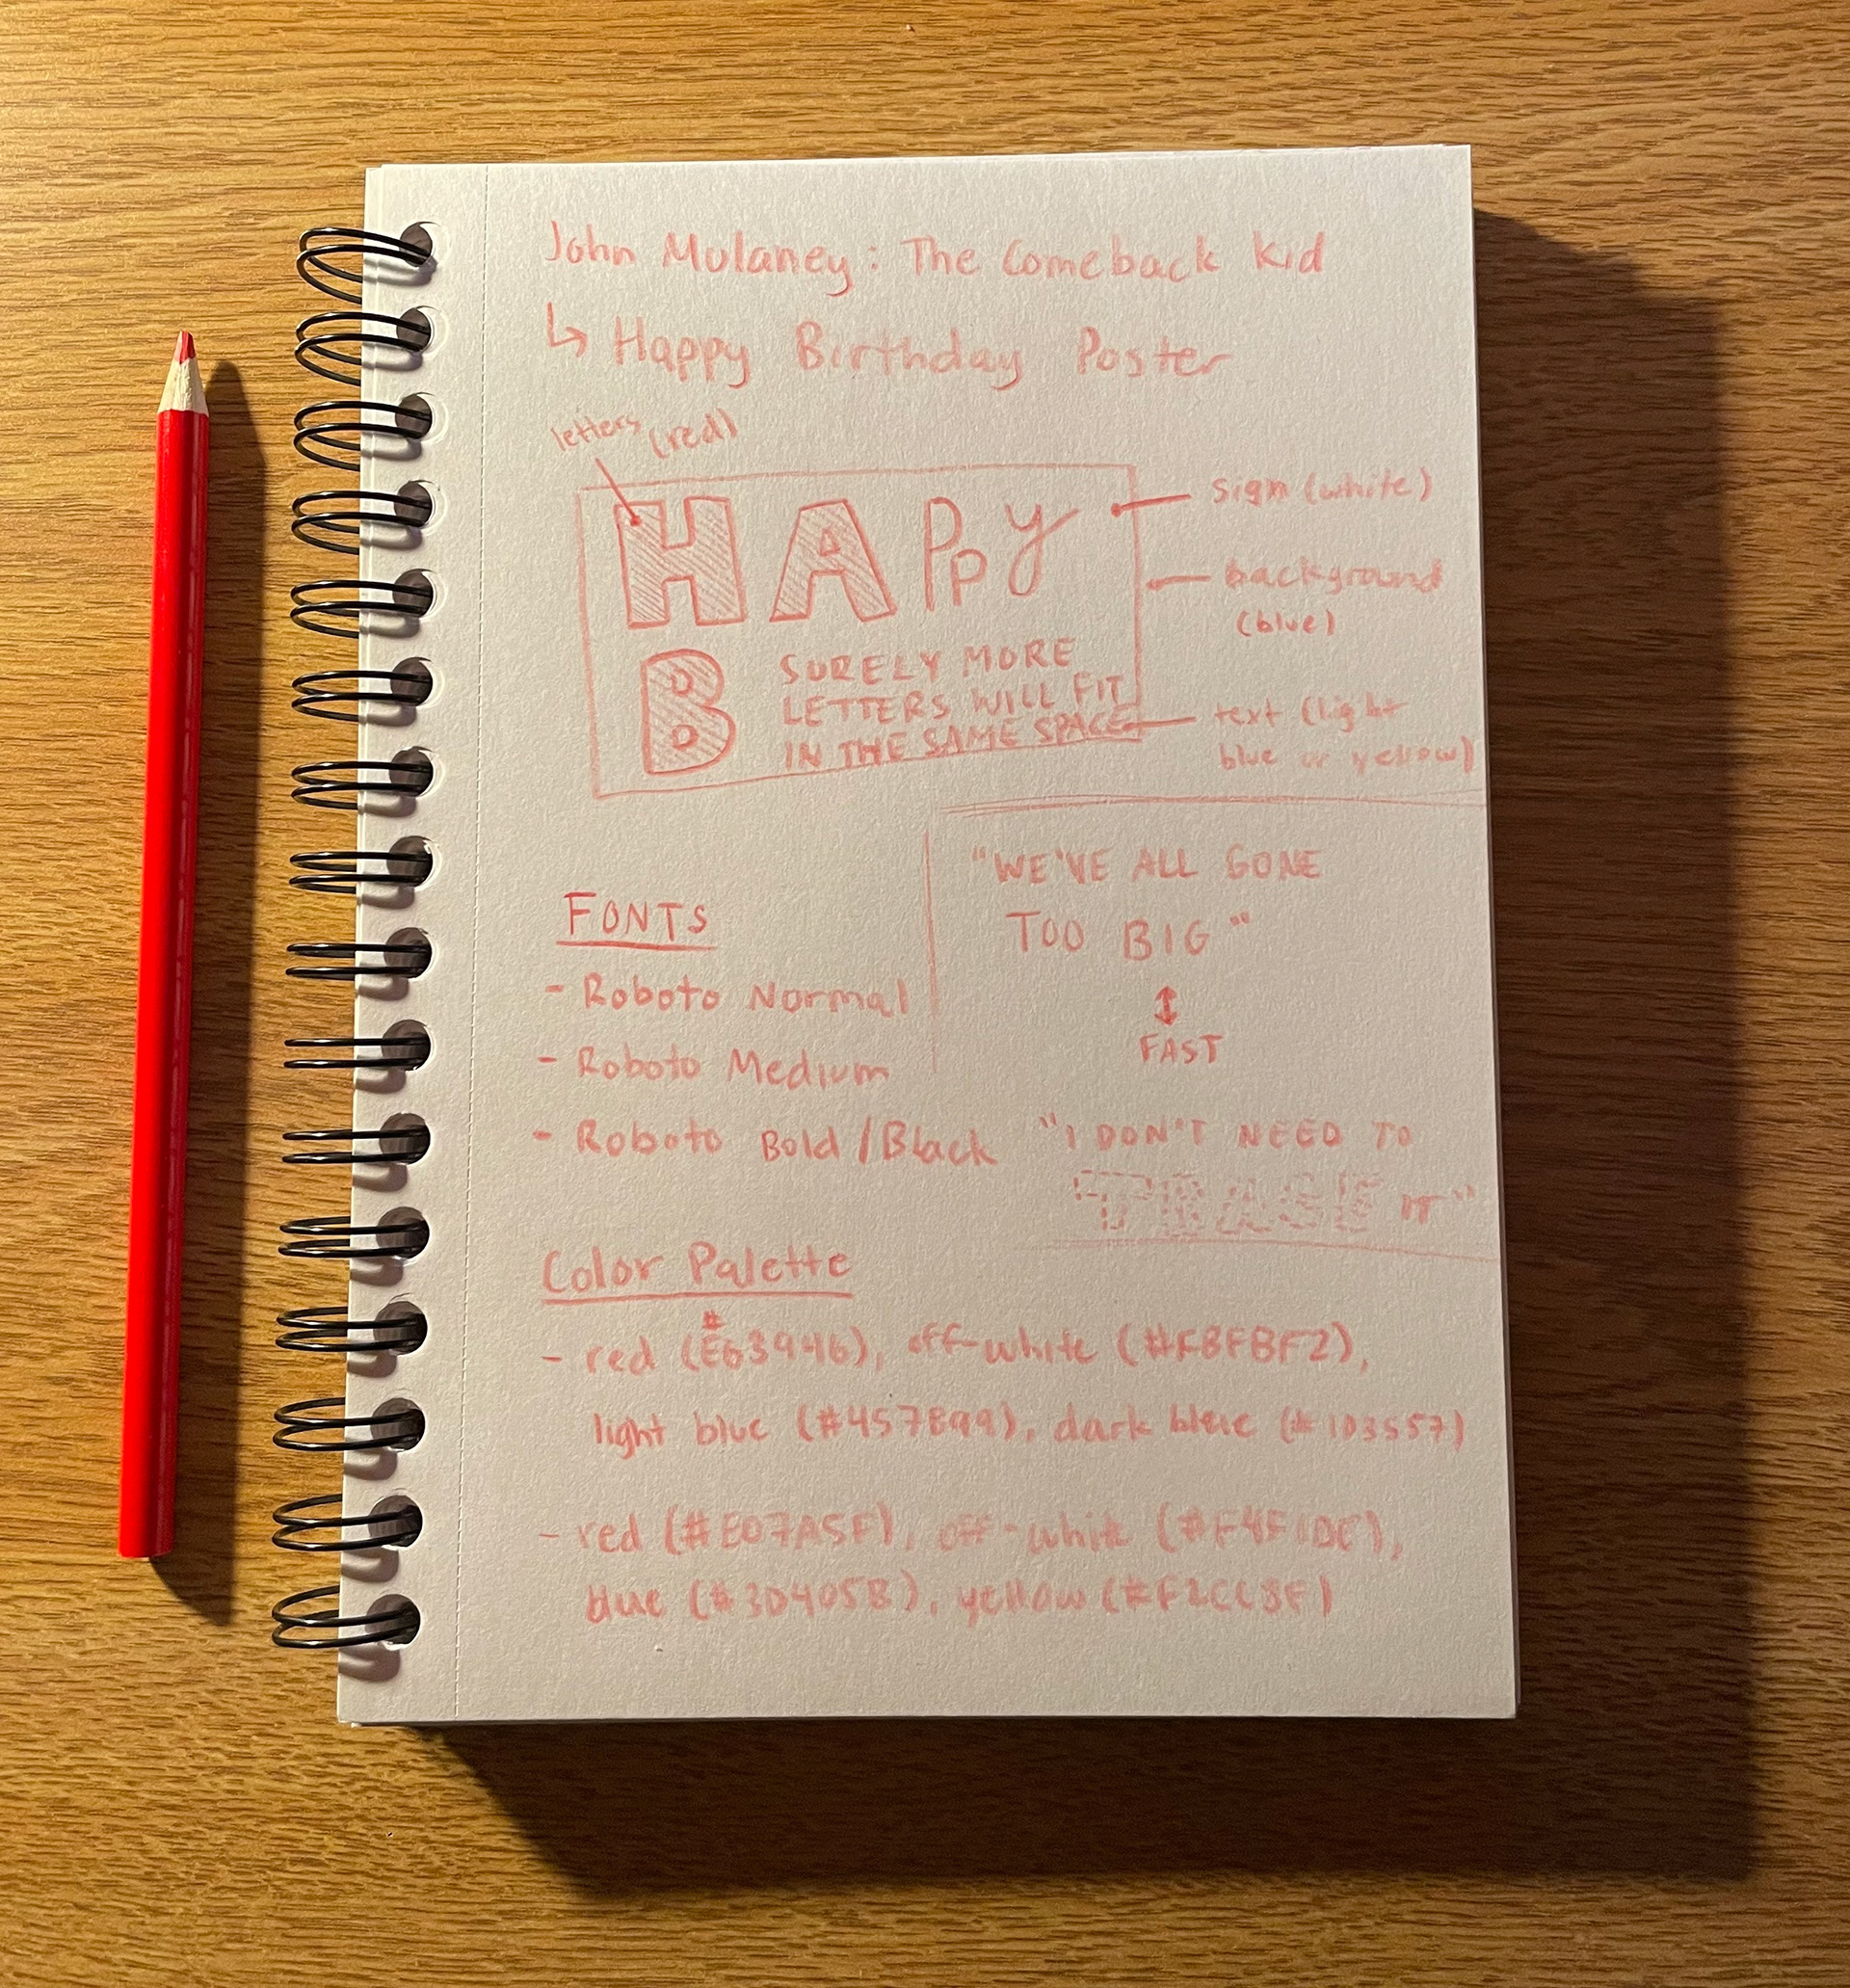 John Mulaney: The Comeback Kid
↳ Happy Birthday Poster
letters (red)
HAPpy
sign (white)
background
(blue)
B
SURELY MORE
LETTERS WILL FIT
IN THE SAME SPACE
text (light
blue or yellow)
"WE'VE ALL GONE
TOO BIG"
↕
FAST
"I DON'T NEED TO
TRASE IT"
FONTS
- Roboto Normal
- Roboto Medium
- Roboto Bold/Black
Color Palette
- red (#E63946), off-white (#F8FBF2),
light blue (#457B99), dark blue (#1D3557)
- red (#E07A5F), off-white (#F4F1DC),
blue (#3D405B), yellow (#F2CC8F)